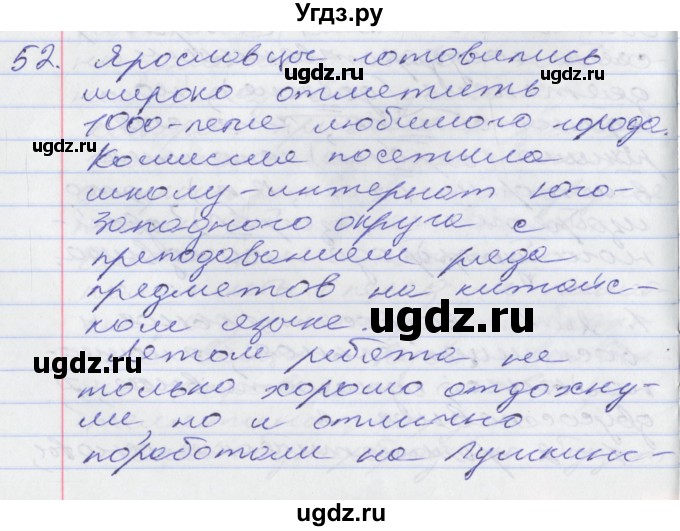 Угдз.ру
52. Ярославцы готовились
широко отметить
1000-летие любимого города.
Комиссия посетила
школу-интернат юго-
западного округа с
преподаванием ряда
предметов на китайс-
ком языке.
Летом ребята не
только хорошо отдохну-
ли, но и отлично
поработали на Пушкинс-
ugdz.ru
ugdz.ru
ugdz.ru
ugdz.ru
ugdz.ru
ugdz.ru
ugdz.ru
ugdz.ru